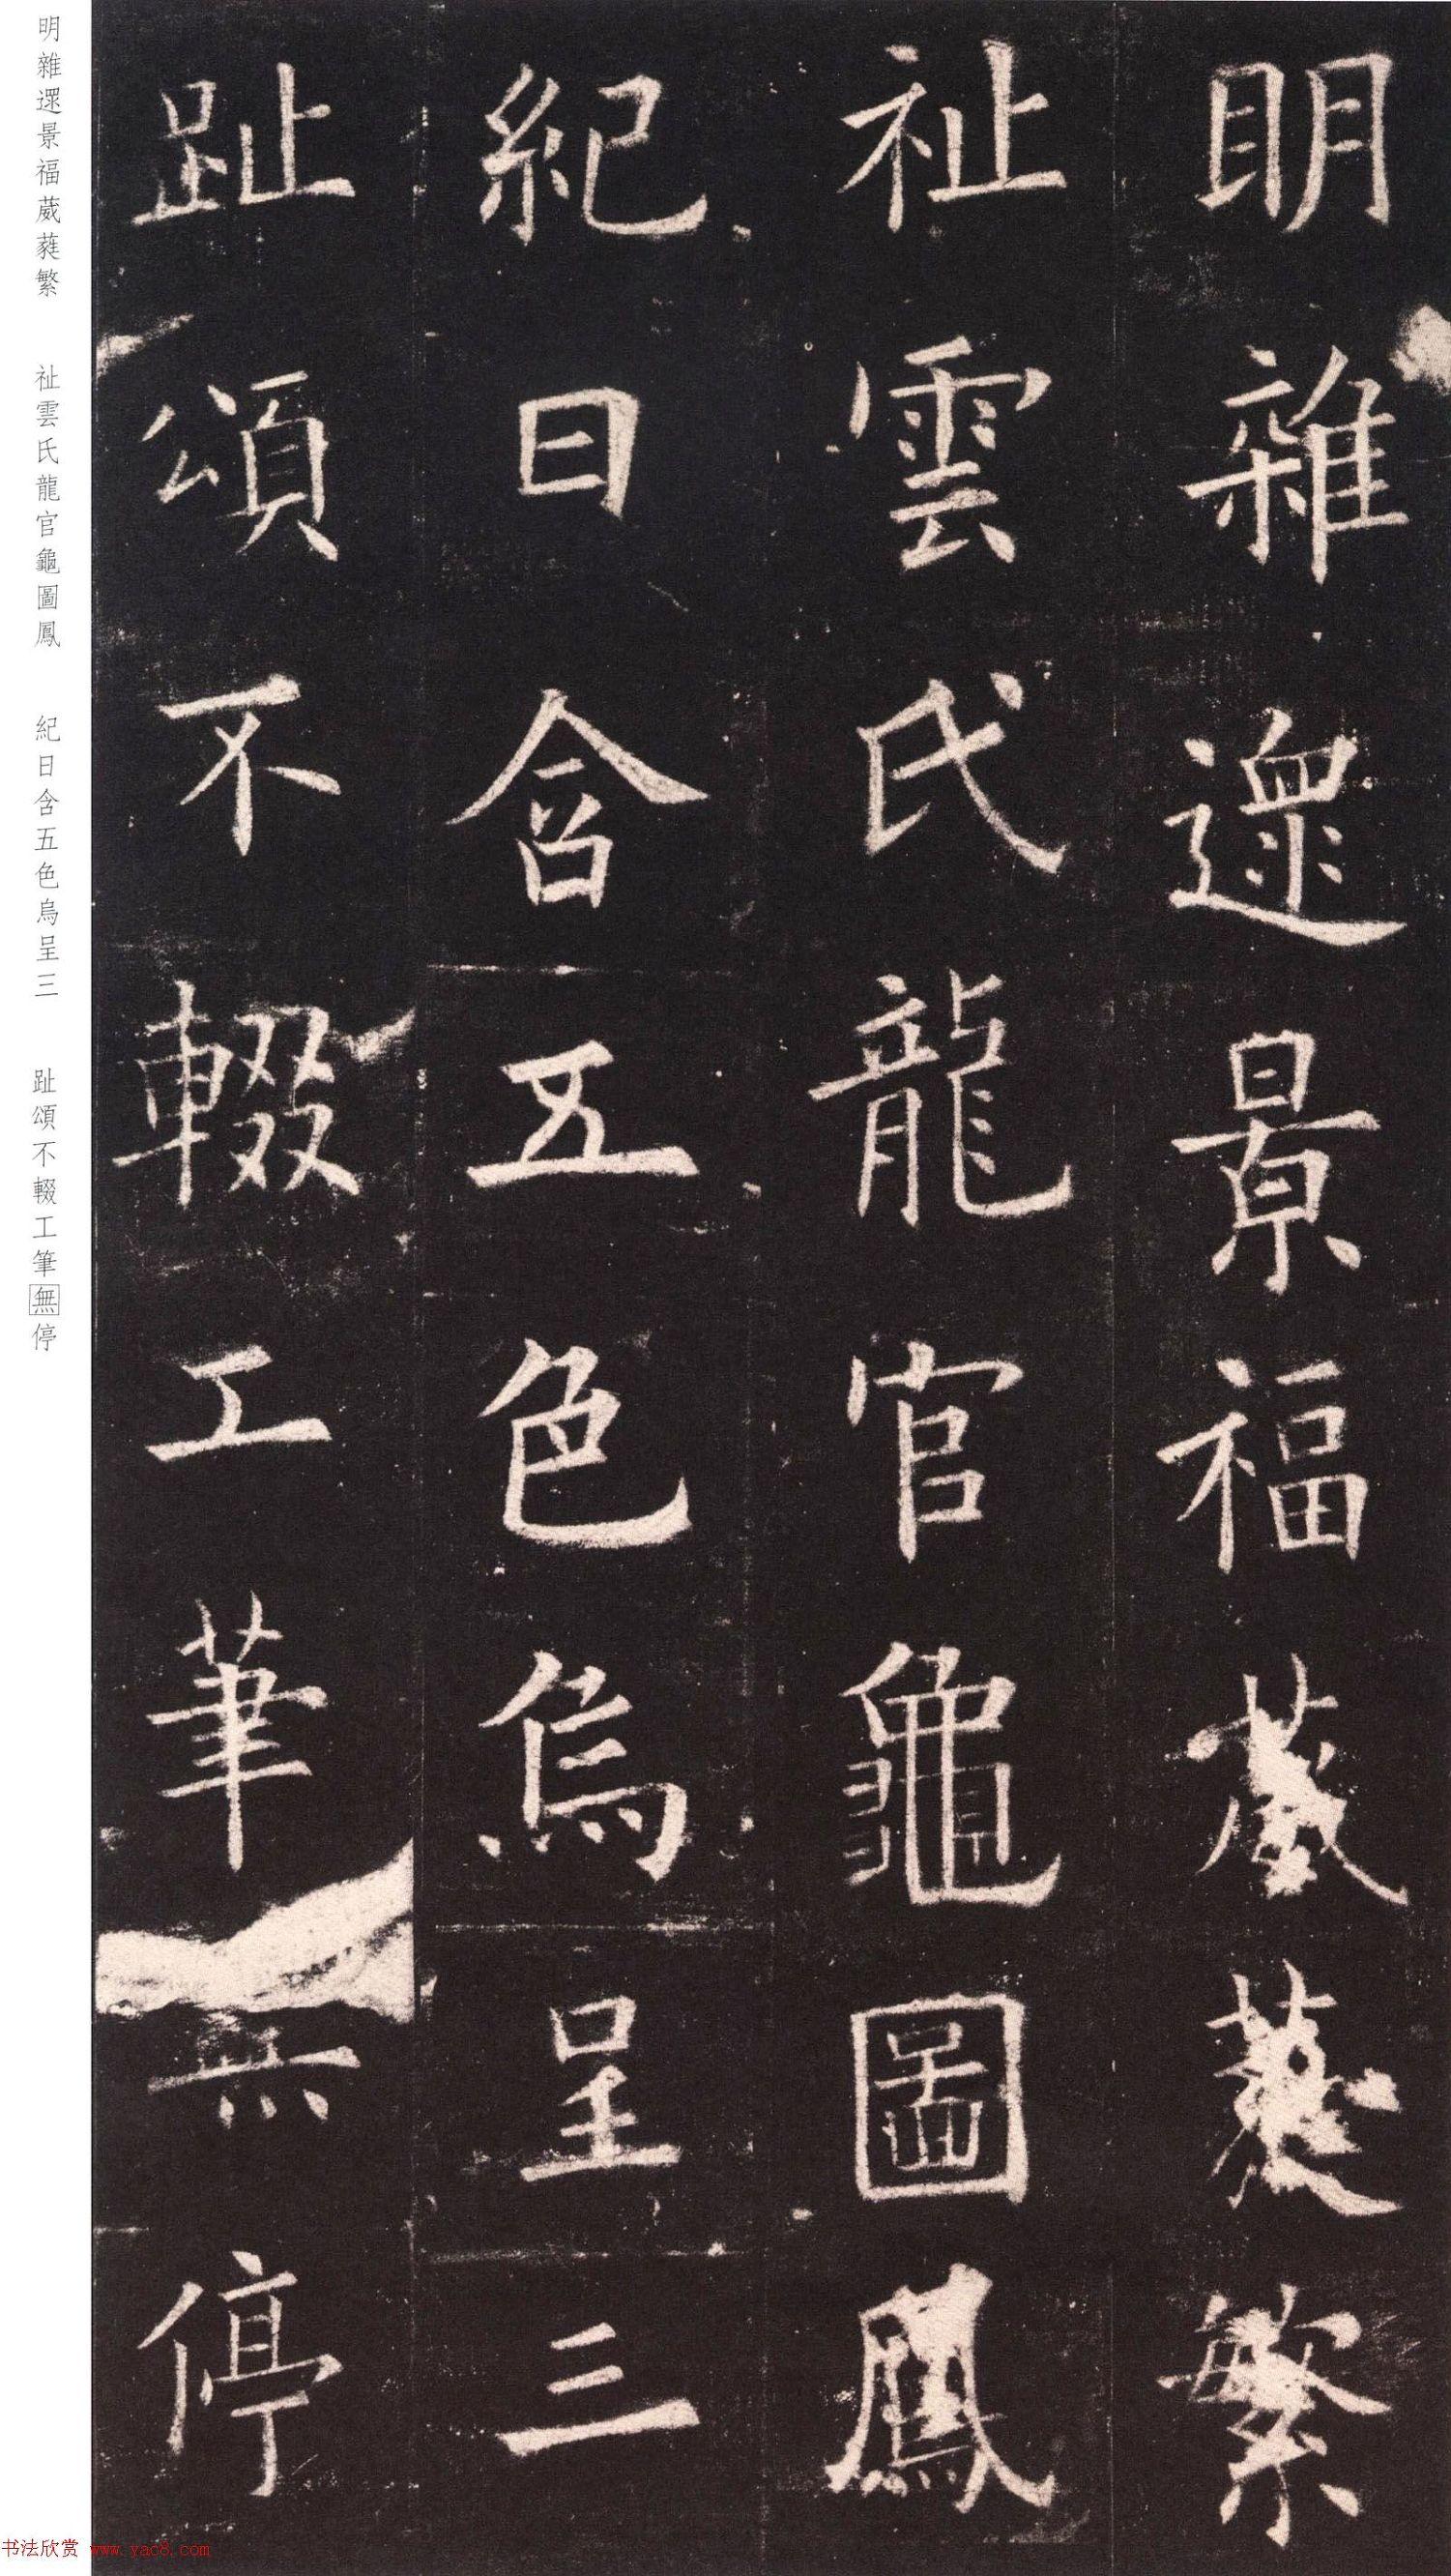 明雜遝景福葳蕤繁
祉雲氏龍官龜圖鳳
紀日含五色烏呈三
趾頌不輟工筆無停
明雜遝景福葳蕤繁 祉雲氏龍官龜圖鳳 紀日含五色烏呈三 趾頌不輟工筆無停
书法欣赏 www.yac8.com